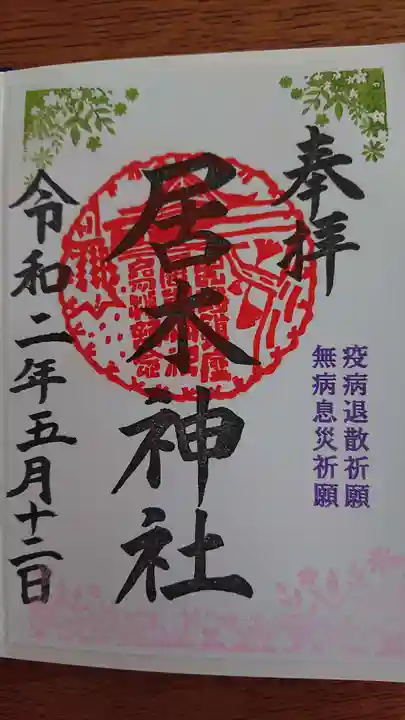 奉拝
疫病退散祈願
無病息災祈願
居木神社
令和二年五月十二日